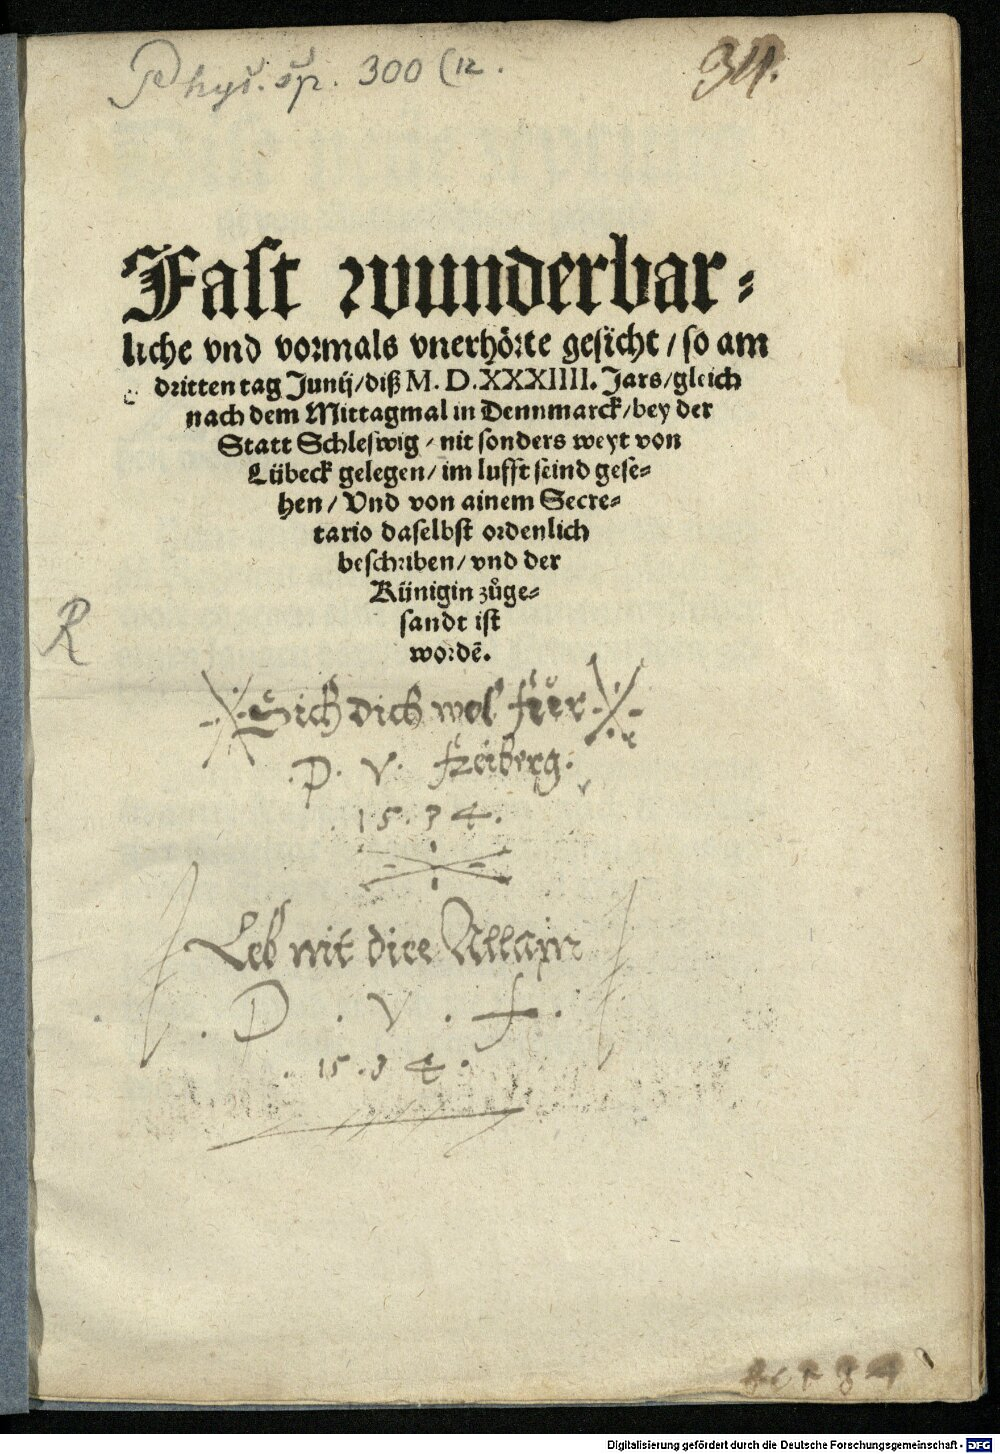 Phys. sp. 300 (12.
34.
Fast wunderbar⸗
liche vnd vormals vnerhörte gesicht / so am
dritten tag Junij / diß M. D. XXXIIII. Jars / gleich
nach dem Mittagmal in Dennmarck / bey der
Statt Schleswig / nit sonders weyt von
Lübeck gelegen / im lufft seind gese⸗
hen / Vnd von ainem Secre⸗
tario daselbst ordenlich
beschriben / vnd der
Künigin zůge⸗
sandt ist
wordẽ.
R
Sich dich wol für
D. V. freiberg.
1534.
Leb mit dire Allain
. D . V . f .
. 15.34.
Digitalisierung gefördert durch die Deutsche Forschungsgemeinschaft - DFG